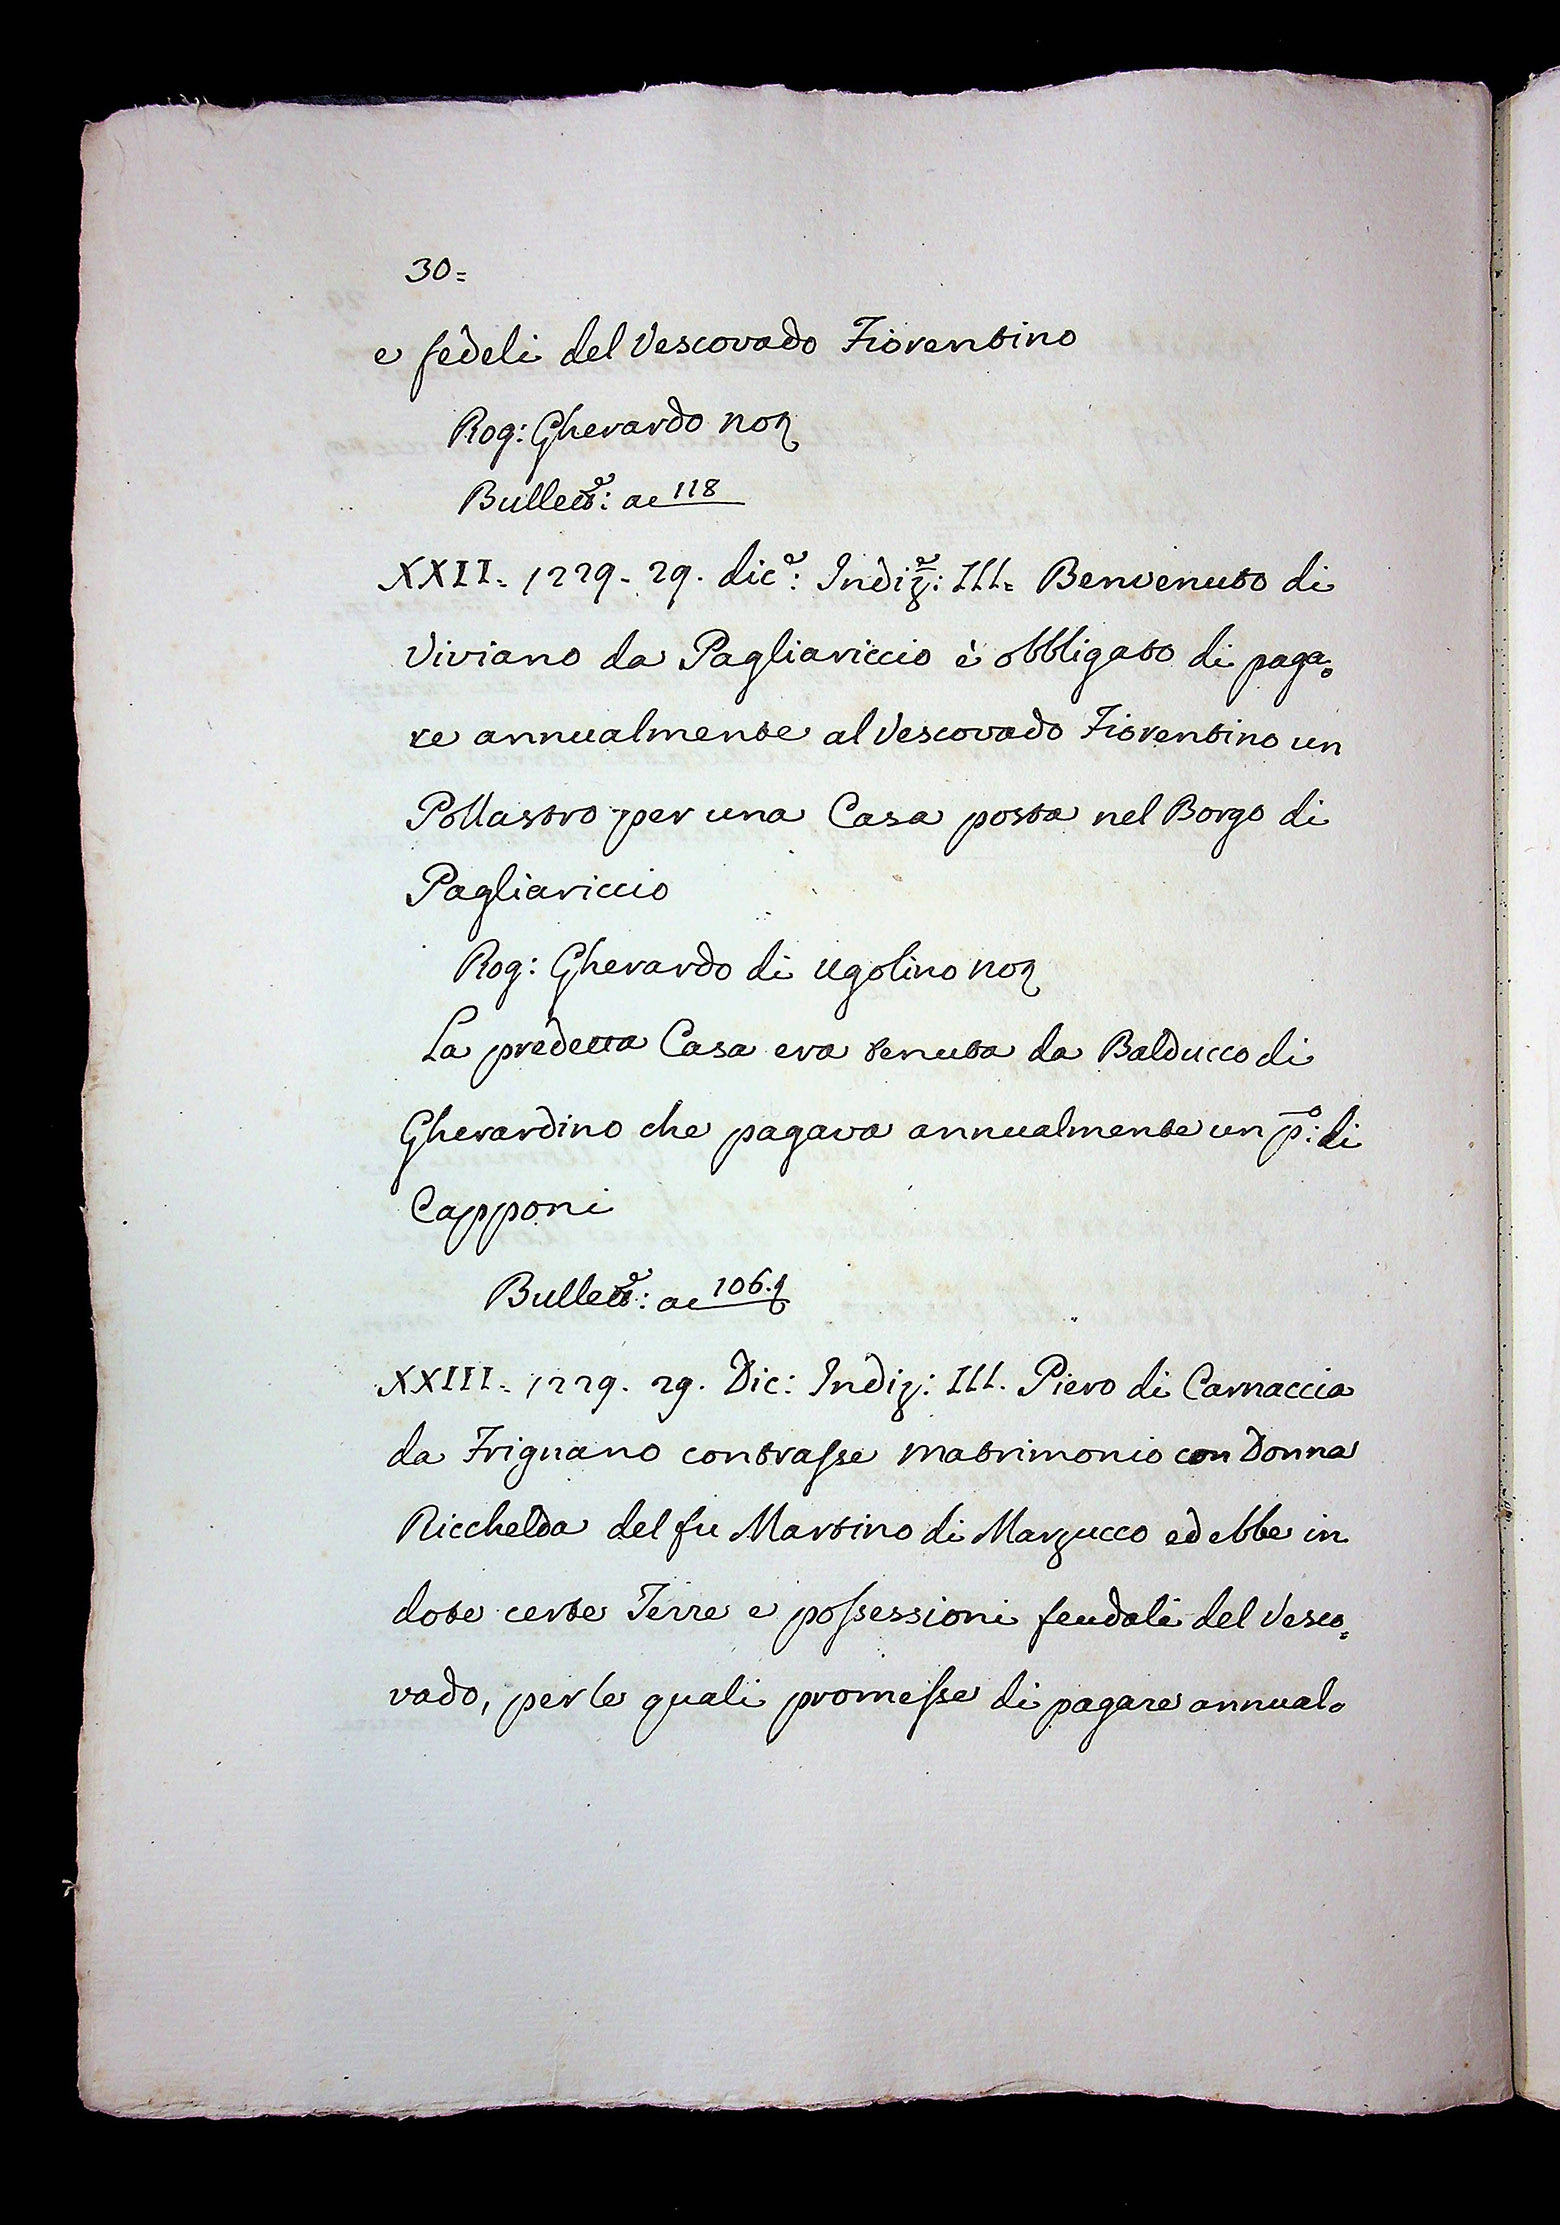 30=
e fedeli del Vescovado Fiorentino
Rog: Gherardo not
Bullett.º: ac 118
XXII. 1229. 29. dic.e: Indiz.e: III. Benvenuto di
Viviano da Pagliariccio è obbligato di paga-
re annualmente al Vescovado Fiorentino un
Pollastro per una Casa posta nel Borgo di
Pagliariccio
Rog: Gherardo di Ugolino not
La predetta Casa era tenuta da Balducco di
Gherardino che pagava annualmente un p.º: di
Capponi
Bullett.º: ac 106.
XXIII. 1229. 29. Dic: Indiz: III. Piero di Carnaccia
da Frignano contrasse matrimonio con Donna
Ricchelda del fu Martino di Marzucco ed ebbe in
dote certe Terre e possessioni feudali del Vesco=
vado, per le quali promesse di pagare annual-